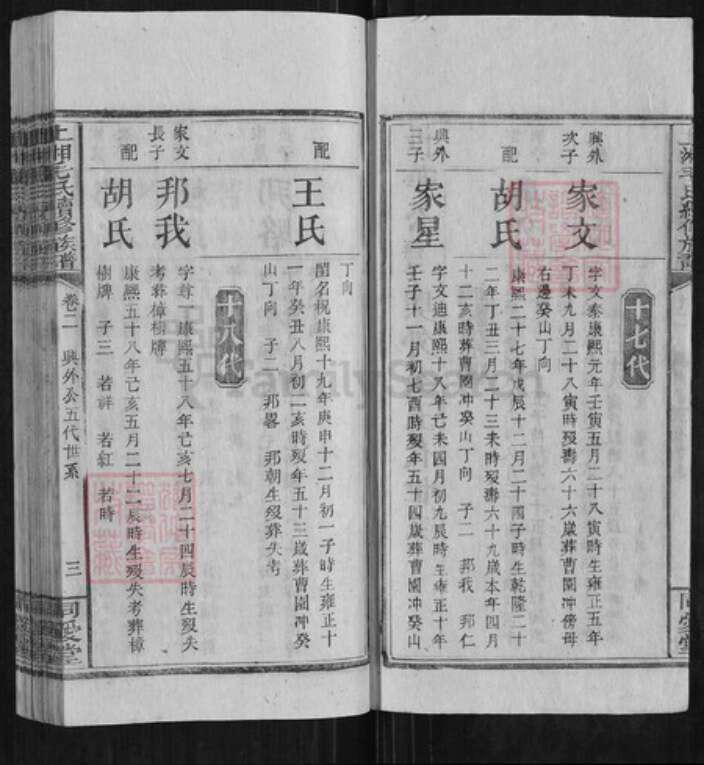 十七代
興外
次子
家文
字文泰康熙元年壬寅五月二十八寅時生雍正五年
丁未九月二十八寅時歿壽六十六歲葬曹園冲傍母
右邊癸山丁向
配
胡氏
康熙二十七年戊辰十二月二十四子時生乾隆二十
二年丁丑三月二十三未時歿壽六十九歲本年四月
十二亥時葬曹園冲癸山丁向 子二 邦我 邦仁
興外
三子
家星
字文迪康熙十八年己未四月初九辰時生雍正十年
壬子十一月初七酉時歿年五十四歲葬曹園冲癸山
丁向
配
王氏
閨名祝康熙十九年庚申十二月初一子時生雍正十
一年癸丑八月初二亥時歿年五十三歲葬曹園冲癸
山丁向 子二 邦畧 邦朝生歿葬失考
十八代
家文
長子
邦我
字尊一康熙五十八年己亥七月二十四辰時生歿失
考葬樟樹牌
配
胡氏
康熙五十八年己亥五月二十二辰時生歿失考葬樟
樹牌 子三 若祥 若紅 若時
上湘毛氏續修族譜
卷二 興外公五代世系
三
同愛堂